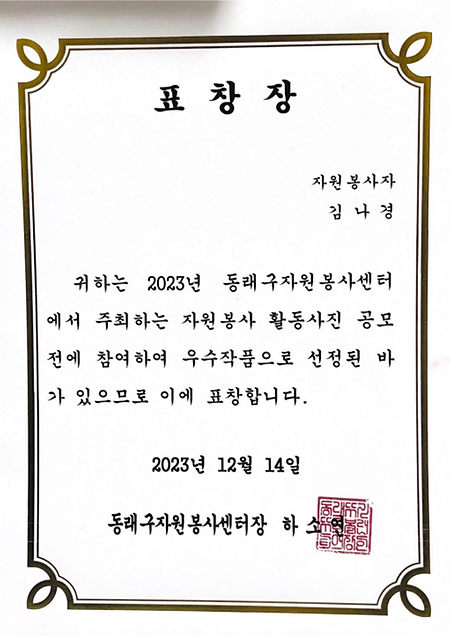 표창장
자원봉사자
김나경
귀하는 2023년 동래구자원봉사센터
에서 주최하는 자원봉사 활동사진 공모
전에 참여하여 우수작품으로 선정된 바
가 있으므로 이에 표창합니다.
2023년 12월 14일
동래구자원봉사센터장 하 소